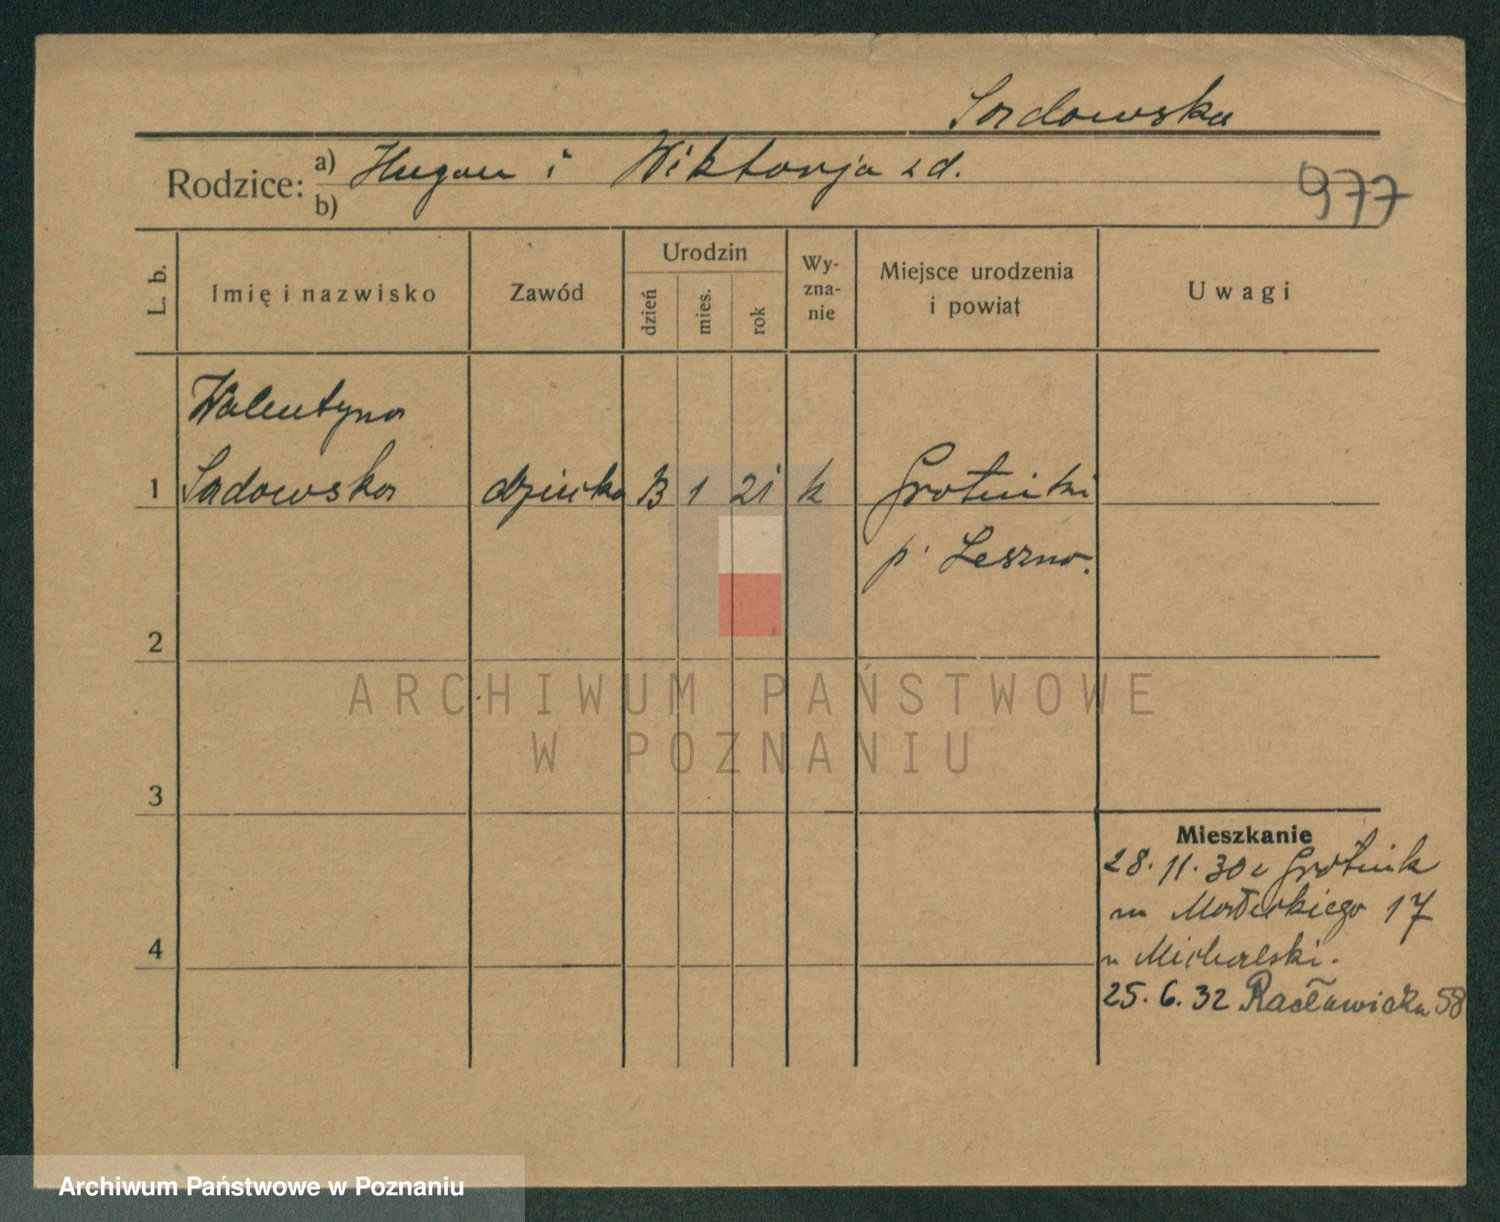 Sadowska
Rodzice: a) Hugon i Wiktorja z d.
b)
977
L. b.
Imię i nazwisko
Zawód
Urodzin
dzień
mies.
rok
Wy-
zna-
nie
Miejsce urodzenia
i powiat
Uwagi
Walentyna
1 Sadowska dziecko 13 1 21 k Grotniki
p. Leszno.
2
3
4
Mieszkanie
28. 11. 30 z Grotnik
na Małeckiego 17
u Michalski.
25. 6. 32 Racławicka 58
ARCHIWUM PAŃSTWOWE
W POZNANIU
Archiwum Państwowe w Poznaniu